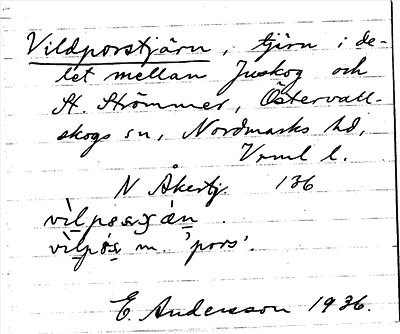 Vildporstjärn, tjärn i de-
let mellan Juskog och
St. Strömmer, Östervall-
skogs sn, Nordmarks hd,
Vrml l.
N Åkertj. 136
m. 'pors'.
E. Andersson 1936.